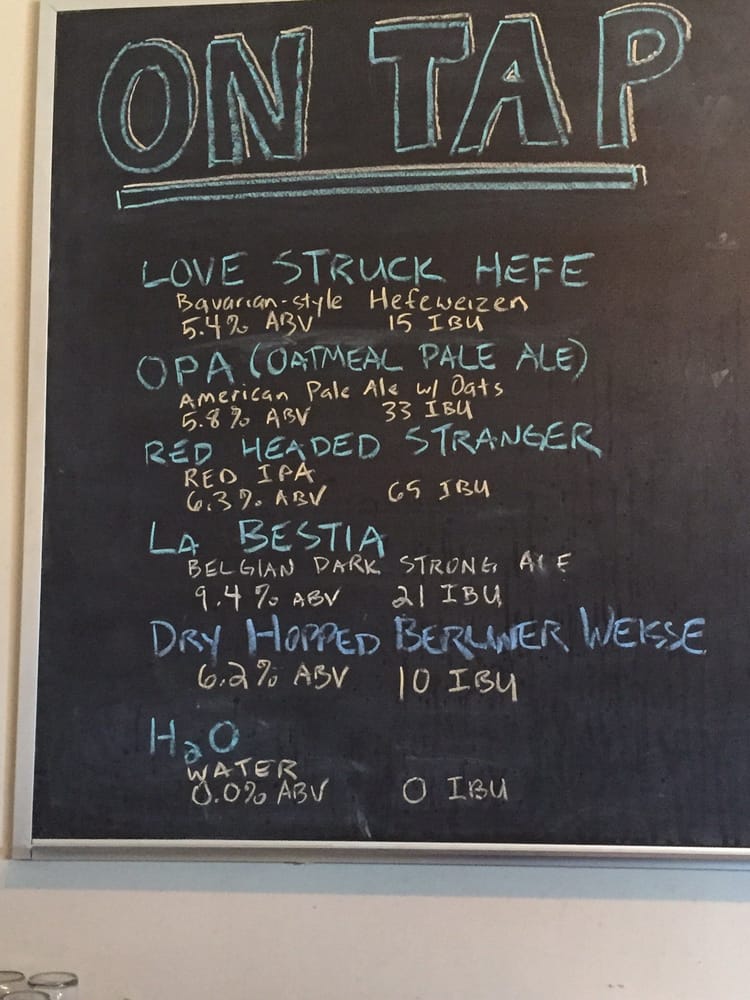 ON TAP
LOVE STRUCK HEFE
Bavarian-style Hefeweizen
5.4% ABV 15 IBU
OPA (OATMEAL PALE ALE)
American Pale Ale w/ Oats
5.8% ABV 33 IBU
RED HEADED STRANGER
RED IPA
6.3% ABV 65 IBU
LA BESTIA
BELGIAN DARK STRONG ALE
9.4% ABV 21 IBU
DRY HOPPED BERLINER WEISSE
6.2% ABV 10 IBU
H2O
WATER
0.0% ABV 0 IBU